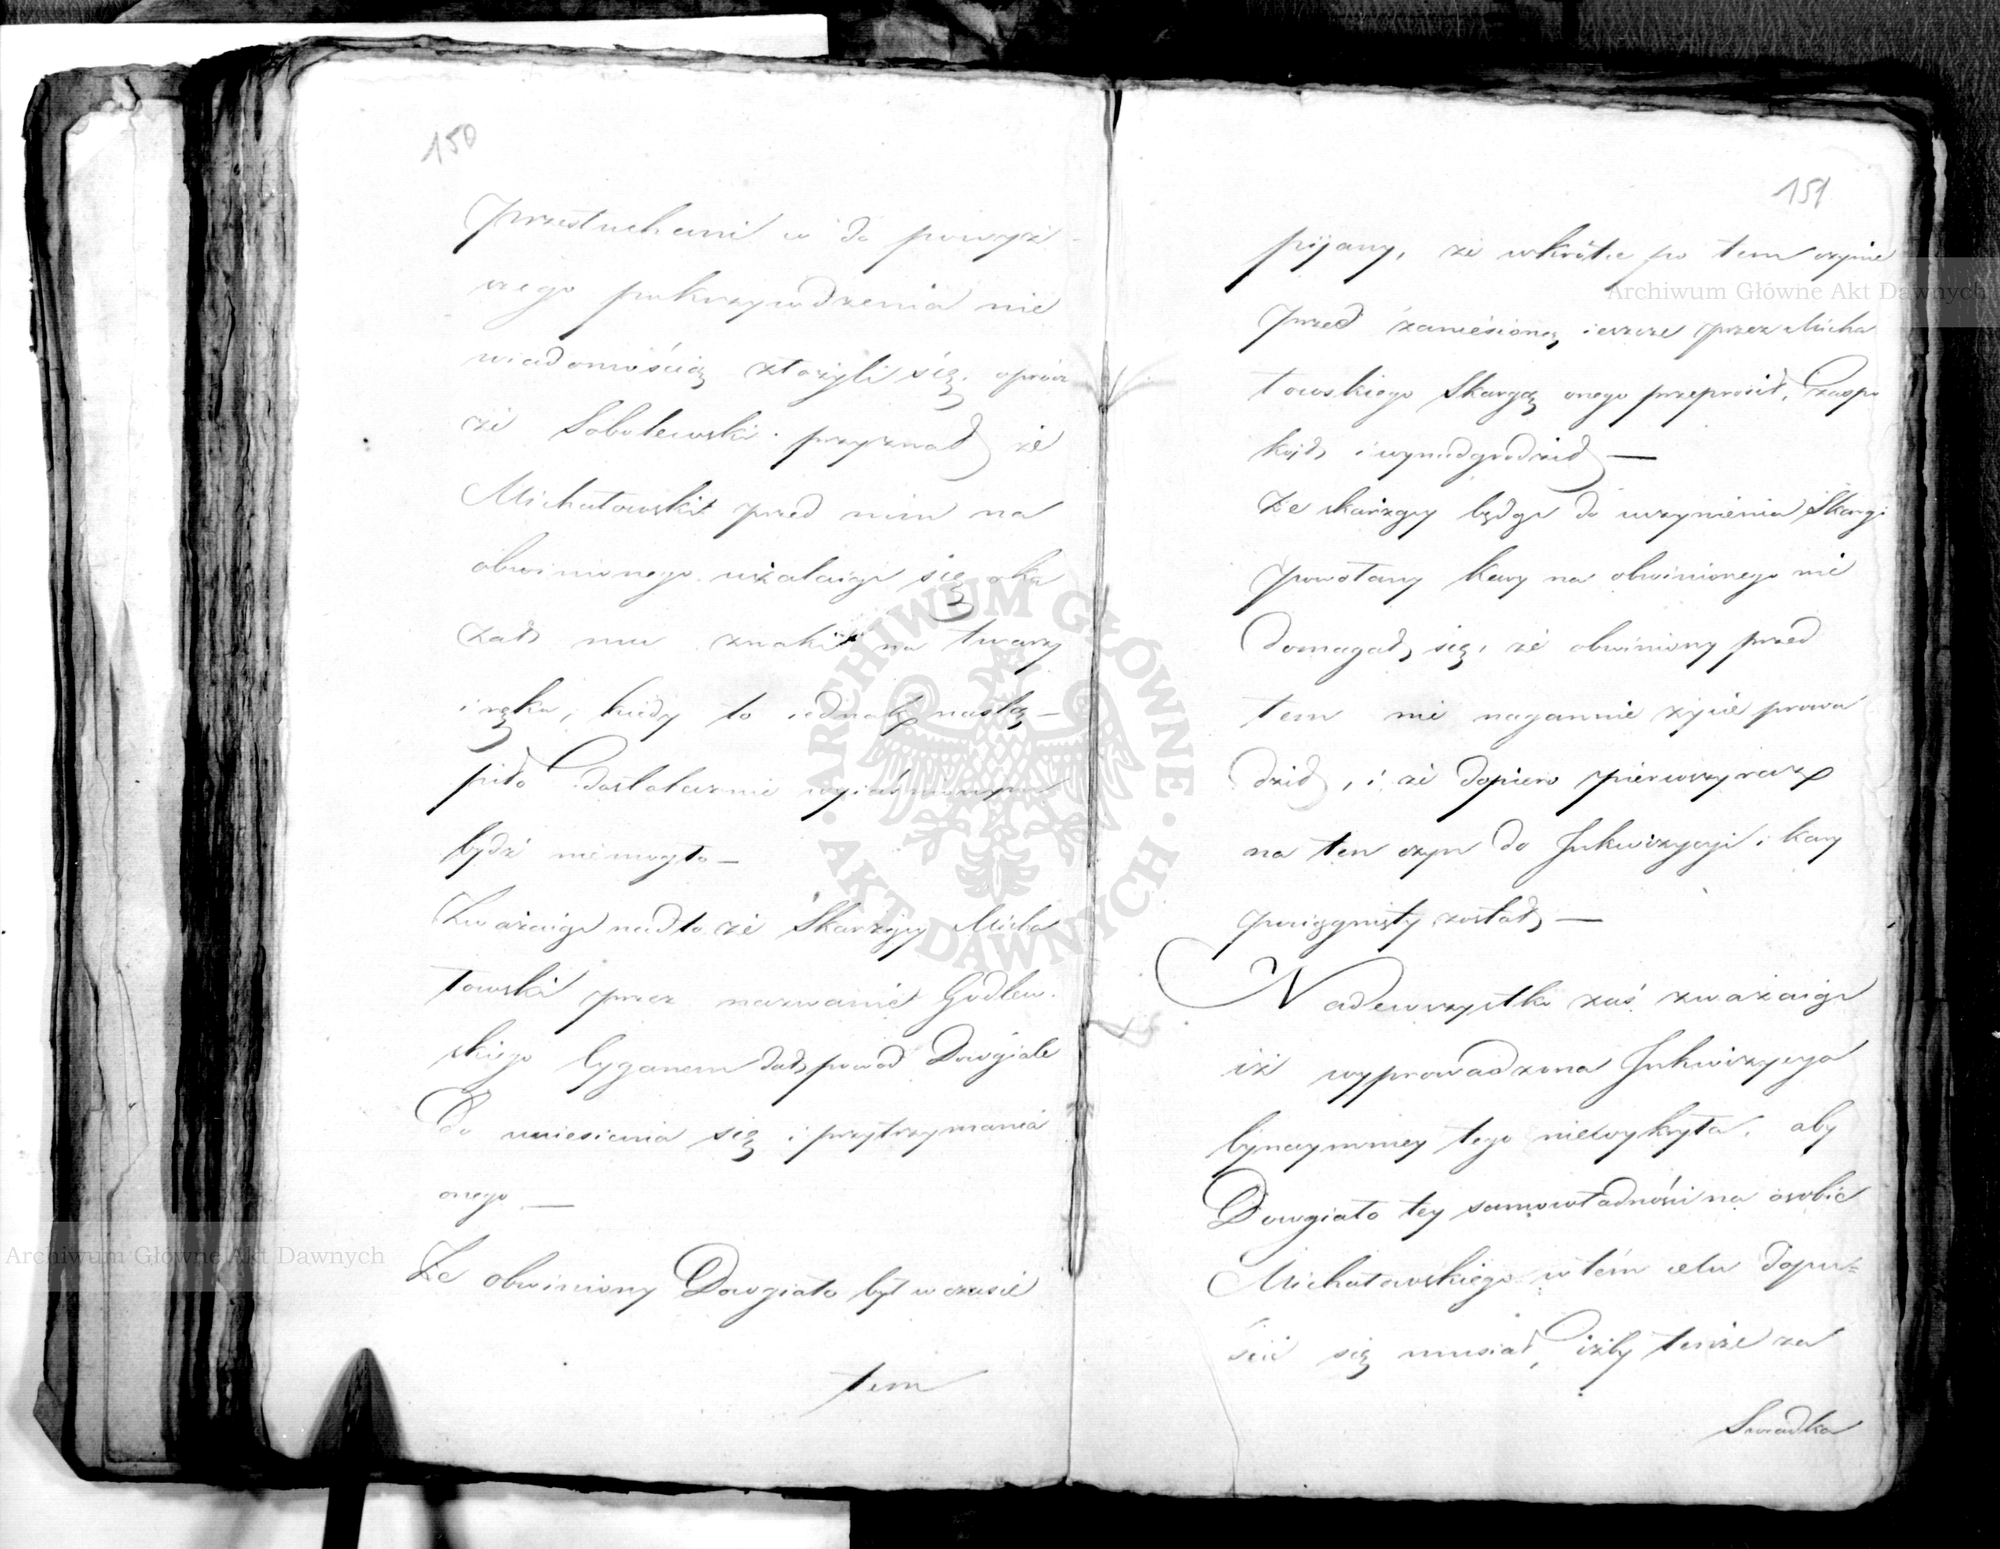 150
przesłuchani co do powyż-
szego pokrzywdzenia nie
wiadomością złożyli się, oprócz
że Sobolewski przyznał że
Michałowski przed nim na
obwinionego użalaiąc się oka
zał mu znaki na twarzy
i ręku, kiedy to iednak nastą-
piło dostatecznie wyiaśnionym
bydź niemogło —
Zważaiąc nadto że Skarżący Micha
łowski przez nazwanie Godlew.
skiego łyganem dał powód Dowgiale
do uniesienia się i przytrzymania
onego. —
Że obwiniony Dowgiało był w czasie
tem
151
pijany, że wkrótce po tem czynie
przed zaniesioną ieszcze przez Micha
łowskiego Skargą onego przeprosił, zaspo
koił, i wynadgrodził —
Że skarżący będąc do uczynienia Skargi
powołany kary na obwinionego nie
domagał się, że obwiniony przed
tem nie nagannie życie prowa
dził, i że dopiero pierwszy raz
na ten czyn do Inkwizycyi i kary
pociągnięty został, —
Nadewszystko zaś zważaiąc
iż wyprowadzona Inkwizycya
bynaymniey tego niewykryła, aby
Dowgiało tey samowładności na osobie
Michałowskiego w tém celu dopu=
ścić się musiał, iżby tenże za
Swiadka
Archiwum Główne Akt Dawnych
Archiwum Główne Akt Dawnych
ARCHIWUM GŁÓWNE
· AKT DAWNYCH ·